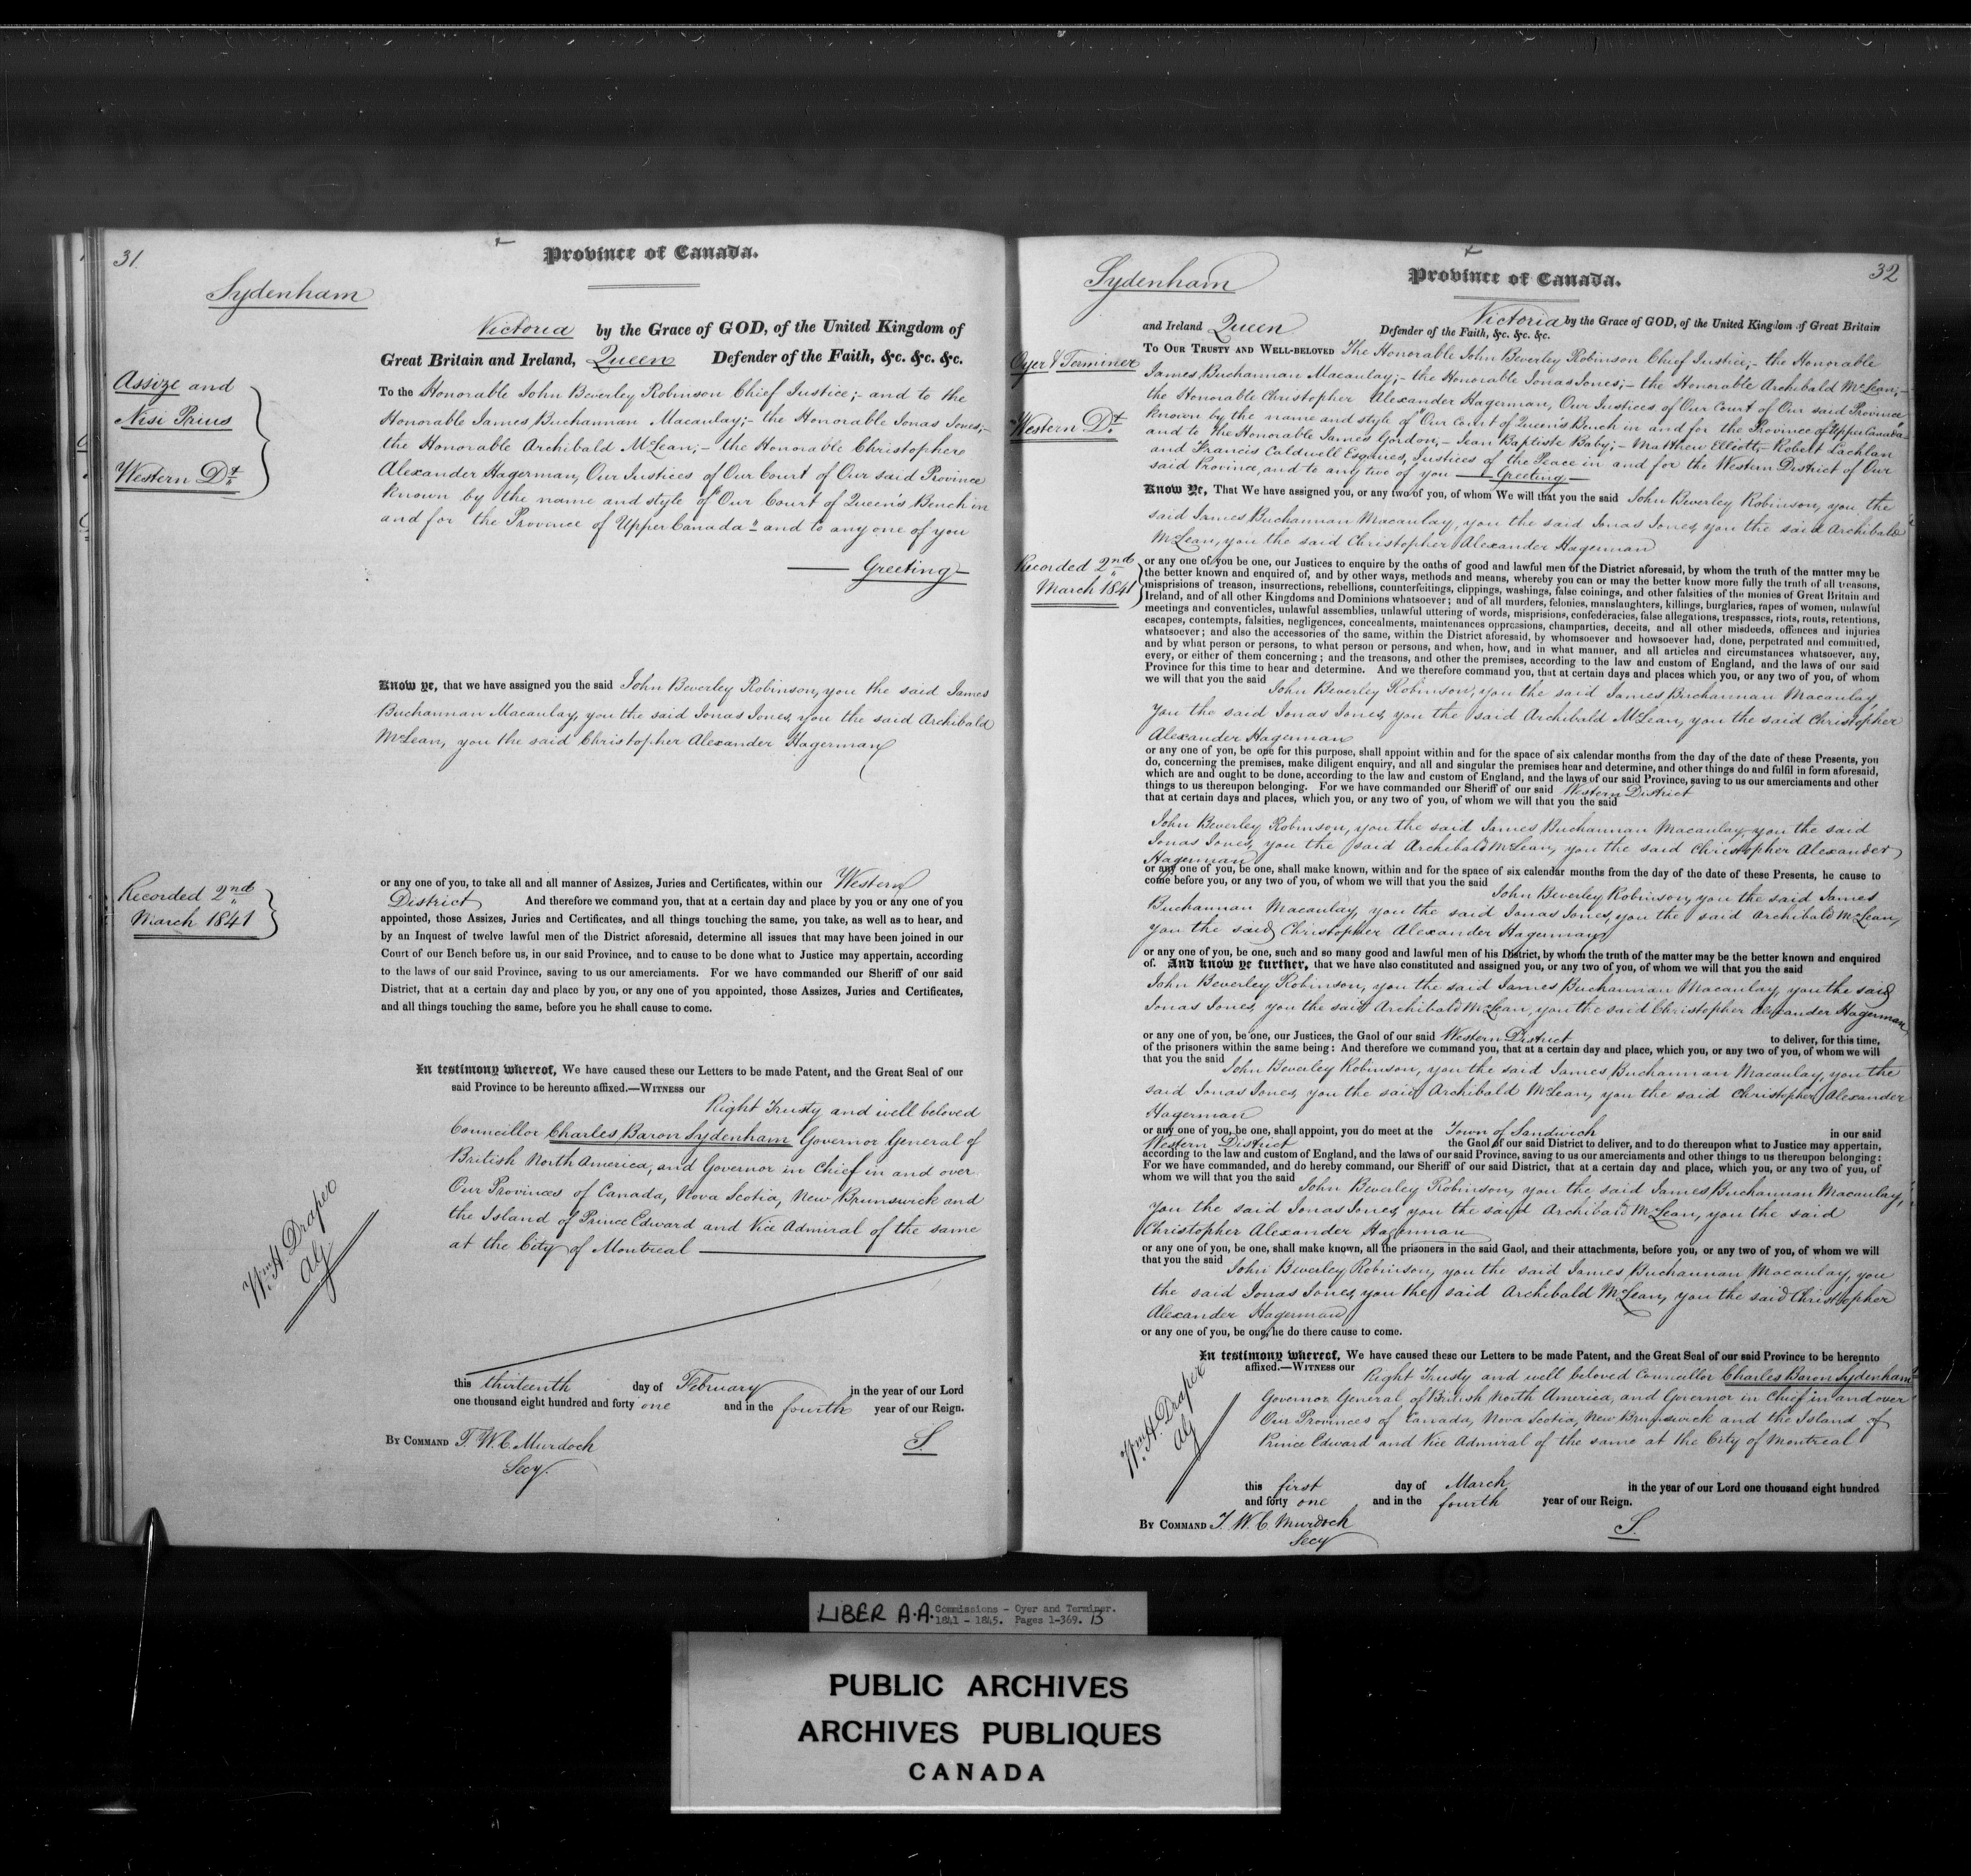 31
Province of Canada.
Sydenham
Victoria by the Grace of GOD, of the United Kingdom of
Great Britain and Ireland, Queen Defender of the Faith, &c. &c. &c.
Assize and
Nisi Prius
Western Dt.
To the Honorable John Beverley Robinson Chief Justice;- and to the
Honorable James Buchannan Macaulay;- the Honorable Jonas Jones;-
the Honorable Archibald McLean;- the Honorable Christopher
Alexander Hagerman, Our Justices of Our Court of Our said Province
known by the name and style of "Our Court of Queen's Bench in
and for the Province of Upper Canada" and to any one of you
Greeting
Know ye, that we have assigned you the said John Beverley Robinson, you the said James
Buchannan Macaulay, you the said Jonas Jones, you the said Archibald
McLean, you the said Christopher Alexander Hagerman
Recorded 2nd
March 1841
or any one of you, to take all and all manner of Assizes, Juries and Certificates, within our Western
District And therefore we command you, that at a certain day and place by you or any one of you
appointed, those Assizes, Juries and Certificates, and all things touching the same, you take, as well as to hear, and
by an Inquest of twelve lawful men of the District aforesaid, determine all issues that may have been joined in our
Court of our Bench before us, in our said Province, and to cause to be done what to Justice may appertain, according
to the laws of our said Province, saving to us our amerciaments. For we have commanded our Sheriff of our said
District, that at a certain day and place by you, or any one of you appointed, those Assizes, Juries and Certificates,
and all things touching the same, before you he shall cause to come.
In testimony whereof, We have caused these our Letters to be made Patent, and the Great Seal of our
said Province to be hereunto affixed.—WITNESS our
Right Trusty and well beloved
Councillor Charles Baron Sydenham Governor General of
British North America, and Governor in Chief in and over
Our Provinces of Canada, Nova Scotia, New Brunswick and
the Island of Prince Edward and Vice Admiral of the same
at the City of Montreal
Wm. H. Draper
AG
this thirteenth day of February in the year of our Lord
one thousand eight hundred and forty one and in the fourth year of our Reign.
BY COMMAND T. W. C. Murdoch S.
Secy.
32
Province of Canada.
Sydenham
Victoria by the Grace of GOD, of the United Kingdom of Great Britain
and Ireland Queen Defender of the Faith, &c. &c. &c.
Oyer & Terminer
Western Dt.
TO OUR TRUSTY AND WELL-BELOVED The Honorable John Beverley Robinson Chief Justice;- the Honorable
James Buchannan Macaulay;- the Honorable Jonas Jones;- the Honorable Archibald McLean;-
the Honorable Christopher Alexander Hagerman, Our Justices of Our Court of Our said Province
known by the name and style of "Our Court of Queen's Bench in and for the Province of Upper Canada"
and to the Honorable James Gordon;- Jean Baptiste Baby;- Matthew Elliott;- Robert Lachlan
and Francis Caldwell Esquires, Justices of the Peace in and for the Western District of Our
said Province, and to any two of you Greeting
Know Ye, That We have assigned you, or any two of you, of whom We will that you the said John Beverley Robinson, you the
said James Buchannan Macaulay, you the said Jonas Jones, you the said Archibald
McLean, you the said Christopher Alexander Hagerman
Recorded 2nd
March 1841
or any one of you be one, our Justices to enquire by the oaths of good and lawful men of the District aforesaid, by whom the truth of the matter may be
the better known and enquired of, and by other ways, methods and means, whereby you can or may the better know more fully the truth of all treasons,
misprisions of treason, insurrections, rebellions, counterfeitings, clippings, washings, false coinings, and other falsities of the monies of Great Britain and
Ireland, and of all other Kingdoms and Dominions whatsoever; and of all murders, felonies, manslaughters, killings, burglaries, rapes of women, unlawful
meetings and conventicles, unlawful assemblies, unlawful uttering of words, misprisions, confederacies, false allegations, trespasses, riots, routs, retentions,
escapes, contempts, falsities, negligences, concealments, maintenances oppressions, champarties, deceits, and all other misdeeds, offences and injuries
whatsoever; and also the accessories of the same, within the District aforesaid, by whomsoever and howsoever had, done, perpetrated and committed,
and by what person or persons, to what person or persons, and when, how, and in what manner, and all articles and circumstances whatsoever, any,
every, or either of them concerning; and the treasons, and other the premises, according to the law and custom of England, and the laws of our said
Province for this time to hear and determine. And we therefore command you, that at certain days and places which you, or any two of you, of whom
we will that you the said
John Beverley Robinson, you the said James Buchannan Macaulay,
you the said Jonas Jones, you the said Archibald McLean, you the said Christopher
Alexander Hagerman
or any one of you, be one for this purpose, shall appoint within and for the space of six calendar months from the day of the date of these Presents, you
do, concerning the premises, make diligent enquiry, and all and singular the premises hear and determine, and other things do and fulfil in form aforesaid,
which are and ought to be done, according to the law and custom of England, and the laws of our said Province, saving to us our amerciaments and other
things to us thereupon belonging. For we have commanded our Sheriff of our said Western District
that at certain days and places, which you, or any two of you, of whom we will that you the said
John Beverley Robinson, you the said James Buchannan Macaulay, you the said
Jonas Jones, you the said Archibald McLean, you the said Christopher Alexander
Hagerman
or any one of you, be one, shall make known, within and for the space of six calendar months from the day of the date of these Presents, he cause to
come before you, or any two of you, of whom we will that you the said
John Beverley Robinson, you the said James
Buchannan Macaulay, you the said Jonas Jones, you the said Archibald McLean,
you the said Christopher Alexander Hagerman
or any one of you, be one, such and so many good and lawful men of his District, by whom the truth of the matter may be the better known and enquired
of. And know ye further, that we have also constituted and assigned you, or any two of you, of whom we will that you the said
John Beverley Robinson, you the said James Buchannan Macaulay, you the said
Jonas Jones, you the said Archibald McLean, you the said Christopher Alexander Hagerman
or any one of you, be one, our Justices, the Gaol of our said Western District to deliver, for this time,
of the prisoners within the same being: And therefore we command you, that at a certain day and place, which you, or any two of you, of whom we will
that you the said John Beverley Robinson, you the said James Buchannan Macaulay, you the
said Jonas Jones, you the said Archibald McLean, you the said Christopher Alexander
Hagerman
or any one of you, be one, shall appoint, you do meet at the Town of Sandwich in our said
Western District the Gaol of our said District to deliver, and to do thereupon what to Justice may appertain,
according to the law and custom of England, and the laws of our said Province, saving to us our amerciaments and other things to us thereupon belonging:
For we have commanded, and do hereby command, our Sheriff of our said District, that at a certain day and place, which you, or any two of you, of
whom we will that you the said
John Beverley Robinson, you the said James Buchannan Macaulay,
you the said Jonas Jones, you the said Archibald McLean, you the said
Christopher Alexander Hagerman
or any one of you, be one, shall make known, all the prisoners in the said Gaol, and their attachments, before you, or any two of you, of whom we will
that you the said John Beverley Robinson, you the said James Buchannan Macaulay, you
the said Jonas Jones, you the said Archibald McLean, you the said Christopher
Alexander Hagerman
or any one of you, be one, he do there cause to come.
In testimony whereof, We have caused these our Letters to be made Patent, and the Great Seal of our said Province to be hereunto
affixed.—WITNESS our Right Trusty and well beloved Councillor Charles Baron Sydenham
Governor General of British North America, and Governor in Chief in and over
Our Provinces of Canada, Nova Scotia, New Brunswick and the Island of
Prince Edward and Vice Admiral of the same at the City of Montreal
Wm. H. Draper
AG
this first day of March in the year of our Lord one thousand eight hundred
and forty one and in the fourth year of our Reign.
BY COMMAND T. W. C. Murdoch S.
Secy
LIBER A.A. Commissions - Oyer and Terminer.
1841 - 1845. Pages 1-369. 13
PUBLIC ARCHIVES
ARCHIVES PUBLIQUES
CANADA